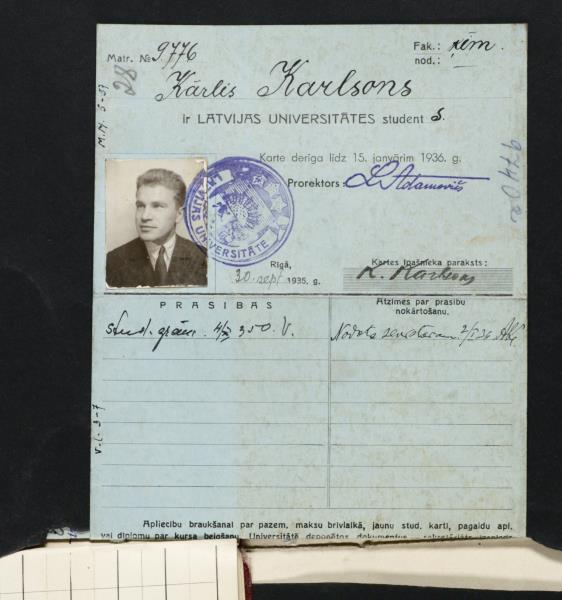 Matr. № 9776
Fak.: ķīm.
nod.:
28
Kārlis Karlsons
ir LATVIJAS UNIVERSITĀTES students.
M.M. 5-37
Karte derīga līdz 15. janvārim 1936. g.
Prorektors: L. Adamovičs
LATVIJAS UNIVERSITĀTE
Rīgā,
30. sept. 1935. g.
Kartes īpašnieka paraksts:
K. Karlsons
PRASĪBAS
Atzīmes par prasību
nokārtošanu.
stud. grām. 4/X 350. V.
Nodots
V-L-3-7
Apliecību braukšanai par pazem. maksu brīvlaikā, jaunu stud. karti, pagaidu apl.
vai diplomu par kursa beigšanu, Universitātē deponētos dokumentus